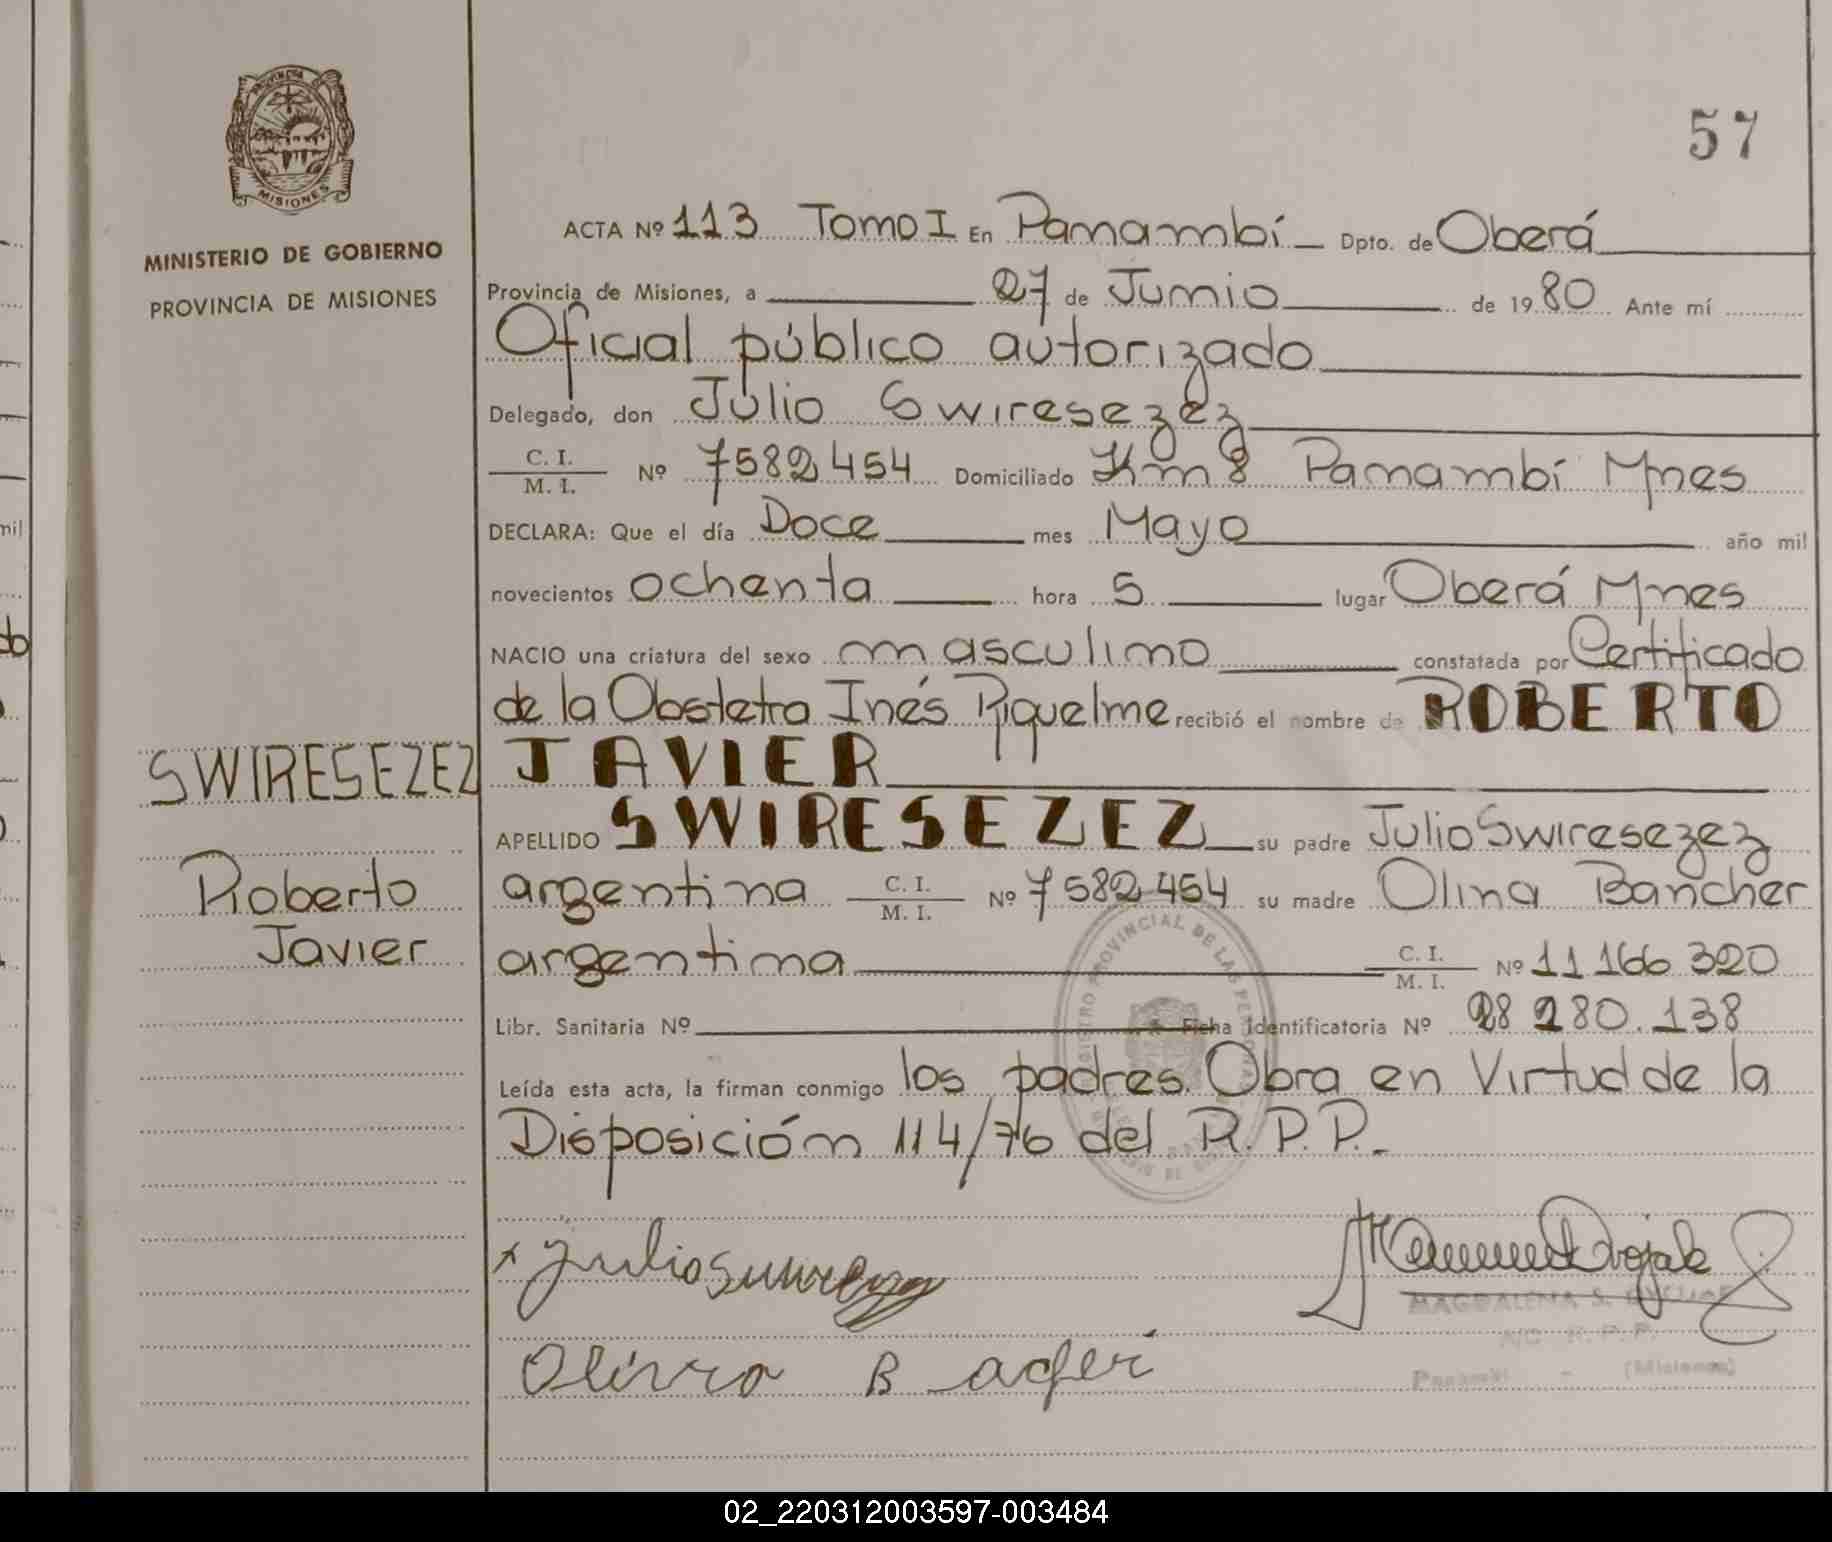 57
PROVINCIA
MISIONES
MINISTERIO DE GOBIERNO
PROVINCIA DE MISIONES
ACTA Nº 113 Tomo I En Panambí Dpto. de Oberá
Provincia de Misiones, a 27 de Junio de 1980 Ante mí
Oficial público autorizado
Delegado, don Julio Swiresezez
C. I.
M. I.
Nº 7582454 Domiciliado Km 8 Panambí Mnes
DECLARA: Que el día Doce mes Mayo año mil
novecientos ochenta hora 5 lugar Oberá Mnes
NACIO una criatura del sexo masculino constatada por Certificado
de la Obstetra Inés Riquelme recibió el nombre de ROBERTO
JAVIER
APELLIDO SWIRESEZEZ su padre Julio Swiresezez
argentina C. I. M. I. Nº 7582454 su madre Olina Bancher
argentina C. I. M. I. Nº 11166320
Libr. Sanitaria Nº Ficha Identificatoria Nº 28 280.138
Leída esta acta, la firman conmigo los padres. Obra en Virtud de la
Disposición 114/76 del R.P.P.
SWIRESEZEZ
Roberto
Javier
MAGDALENA S.
A/C R.P.P.
Panambí - (Misiones)
02_220312003597-003484